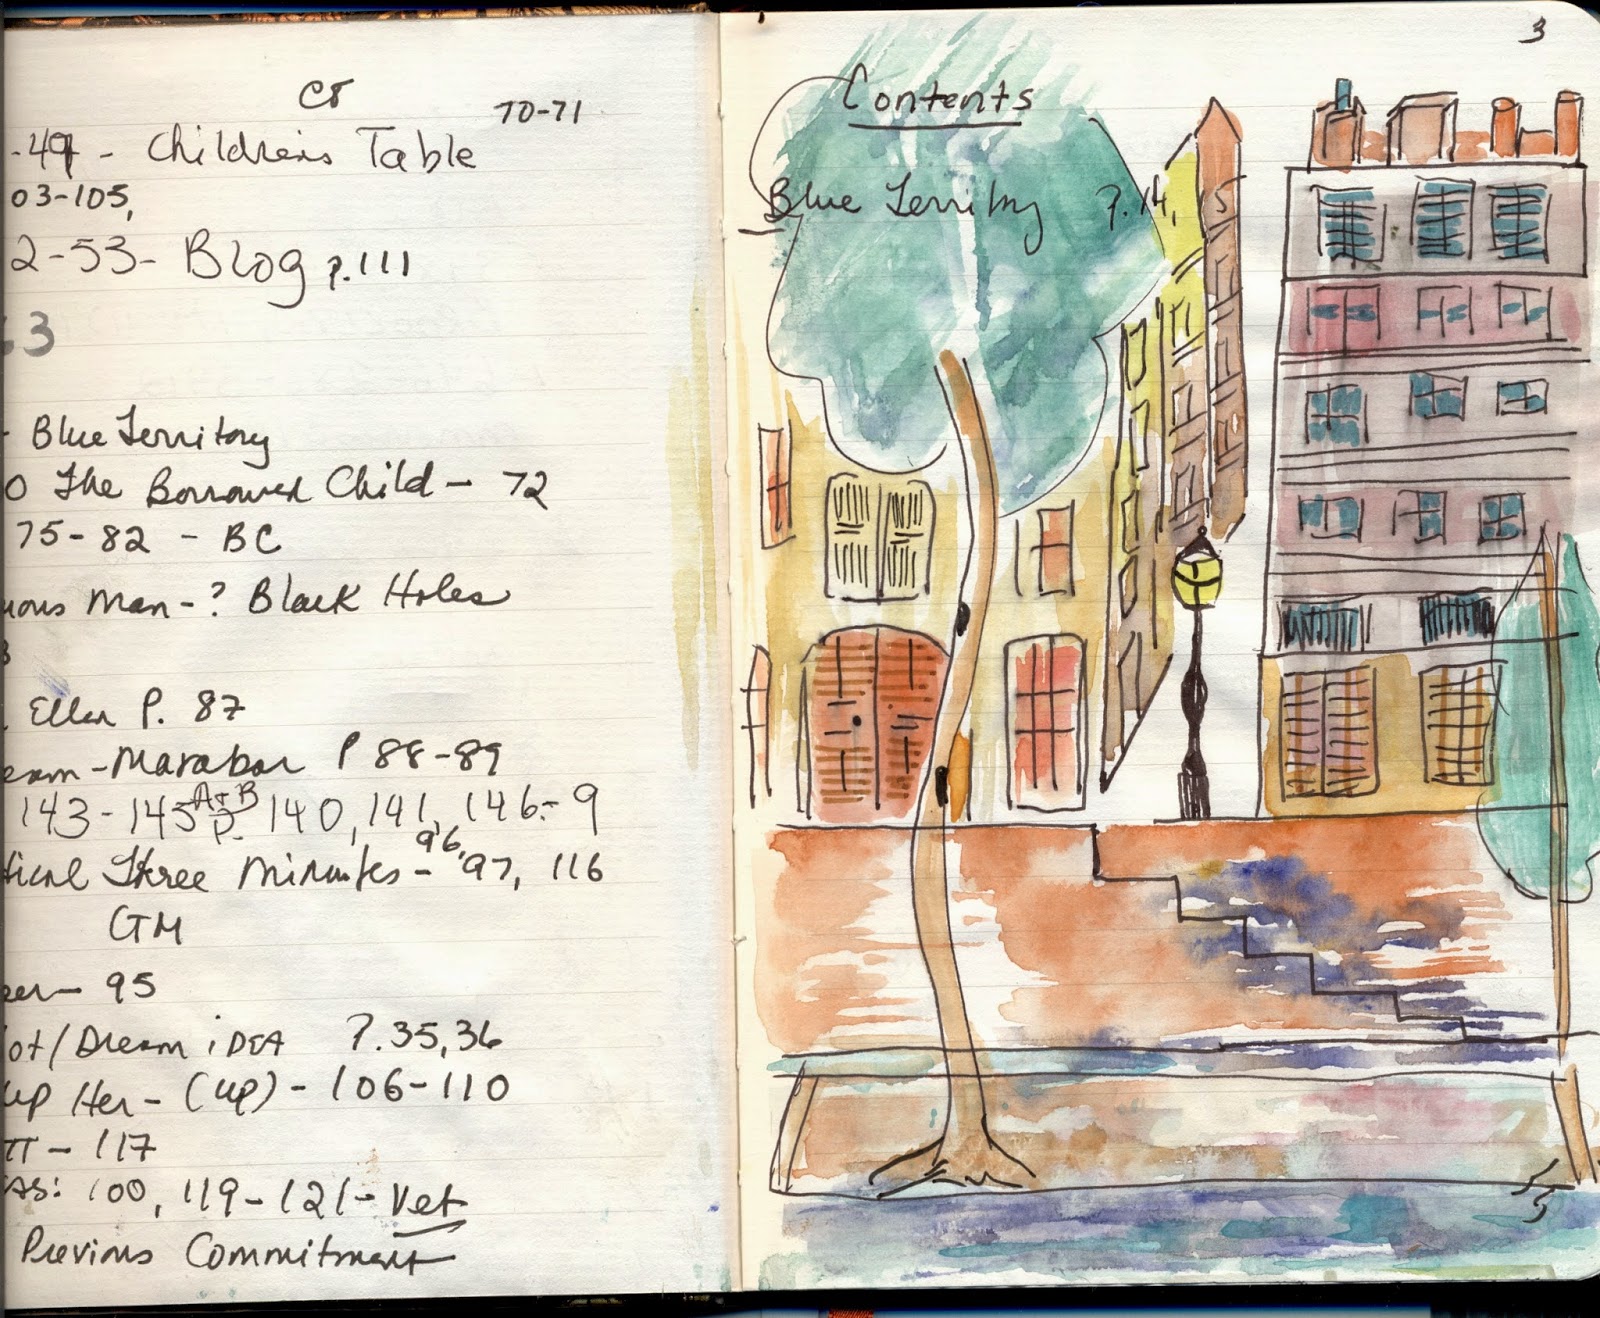 CT
70-71
-49 - Childrens Table
03-105,
2-53- Blog p.111
3
- Blue Territory
0 The Borrowed Child - 72
75-82 - BC
uous Man - ? Black Holes
. Ellen P. 87
eam - Marabar P 88-89
143-145 A+B P. 140, 141, 146-9
tical Three Minutes - 96, 97, 116
GM
er- 95
ot/Dream iDEA P. 35,36
up Her - (up) - 106-110
- 117
AS: 100, 119-121- Vet
Previous Commitment
3
Contents
Blue Territory P. 14, 15